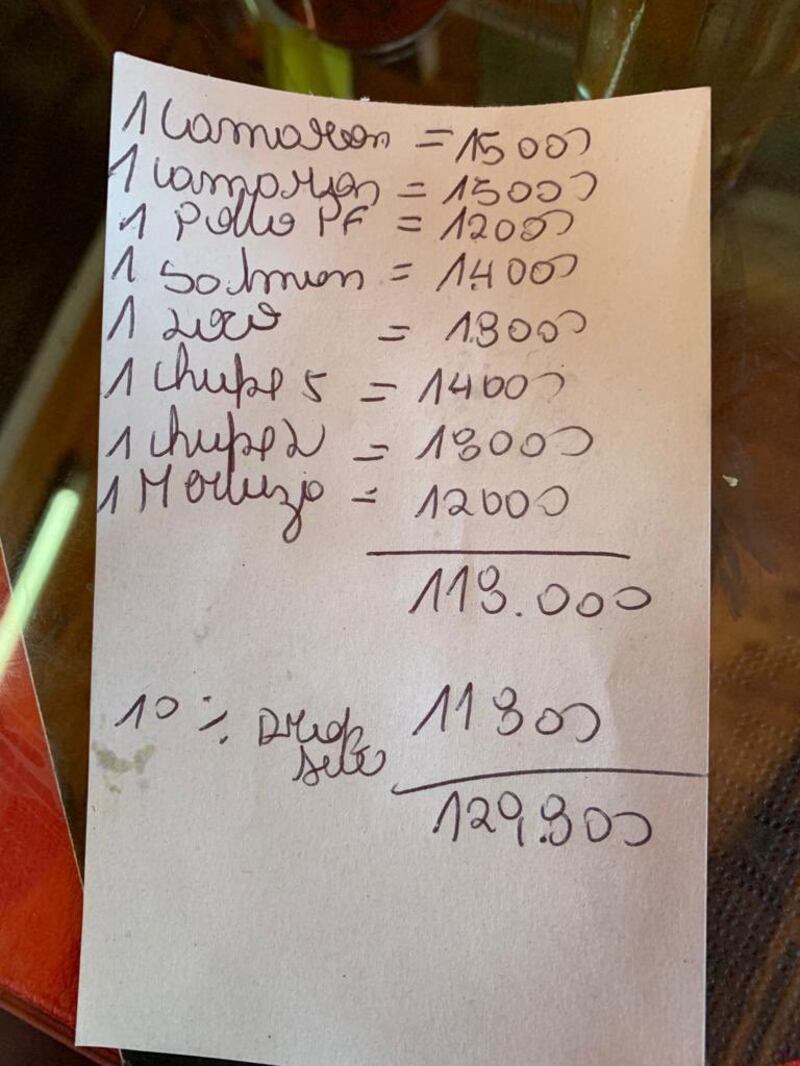 1 Camaron = 15000
1 Camaron = 15000
1 Pollo PF = 12000
1 Salmon = 14000
1 Loco = 18000
1 Chupe S = 14000
1 Chupe L = 18000
1 Merluza = 12000
118.000
10 % Prop 11800
129.800